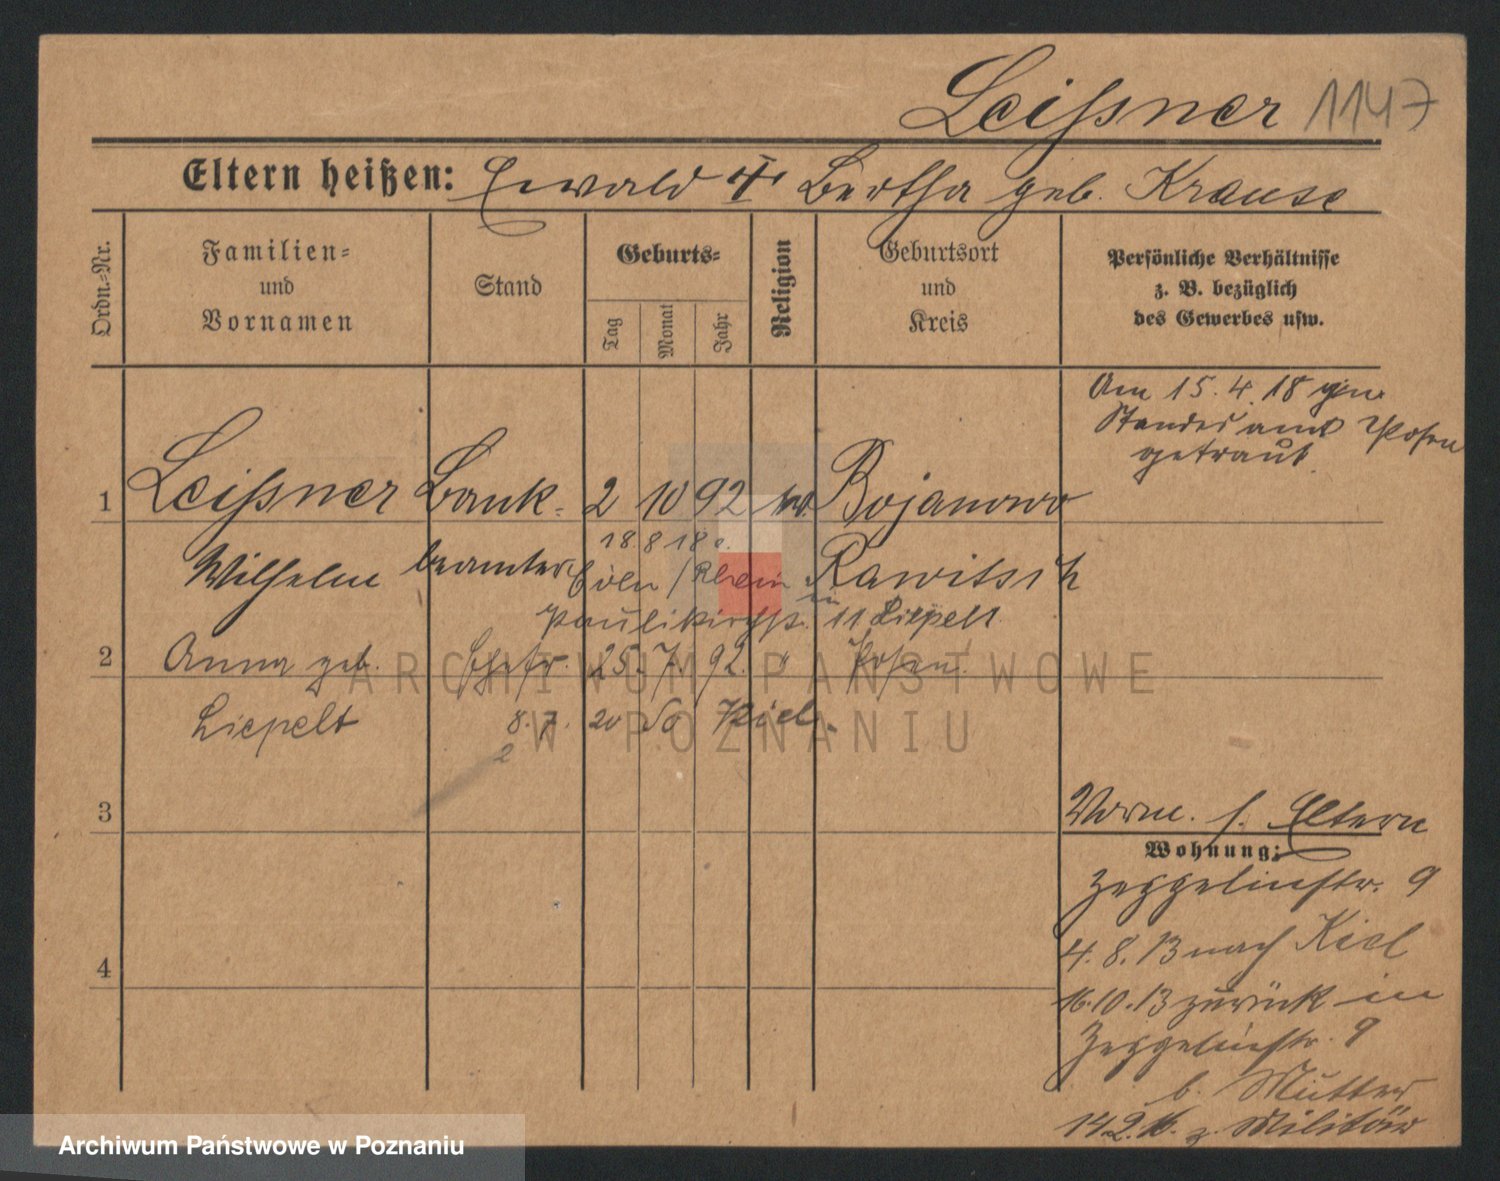 Leißner 1147
Eltern heißen: Ewald † Bertha geb. Krause
Ordn.-Nr.
Familien-
und
Vornamen
Stand
Geburts-
Tag
Monat
Jahr
Religion
Geburtsort
und
Kreis
Persönliche Verhältnisse
z. B. bezüglich
des Gewerbes usw.
Am 15.4.18
Standesamt Posen
getraut.
1 Leißner Bank- 2 10 92 Bojanowo
18.8.18
Wilhelm beamter Cöln/Rhein Rawitsch
Paulikirchstr. 11 Liepelt
2 Anna geb. Ehefr. 25. 7. 92. " Posen.
Liepelt 8.7. 20 Kiel.
2
3
4
Vorm. s. Eltern
Wohnung:
Zeppelinstr. 9
4.8.13 nach Kiel
16.10.13 zurück in
Zeppelinstr. 9
b. Mutter
z. Militär
ARCHIWUM PAŃSTWOWE
W POZNANIU
Archiwum Państwowe w Poznaniu